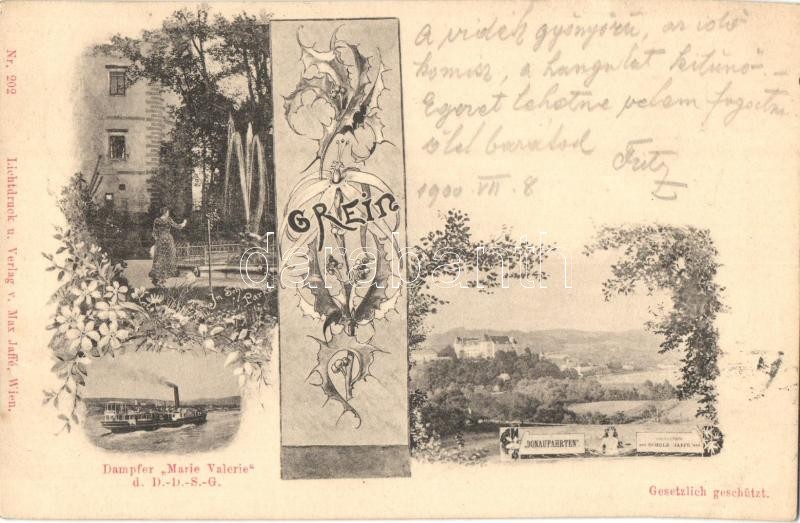 Nr. 202
Lichtdruck u. Verlag v. Max Jaffé, Wien.
GREIN
A vidék gyönyörű, az idő
komisz, a hangulat kitünő –
Egeret lehetne velem fogatni
ölel barátod
Fritz
1900 VII. 8
darabanth
Dampfer „Marie Valerie"
d. D.-D.-S.-G.
"DONAUFAHRTEN"
SCHOLZ JAFFÉ
Gesetzlich geschützt.